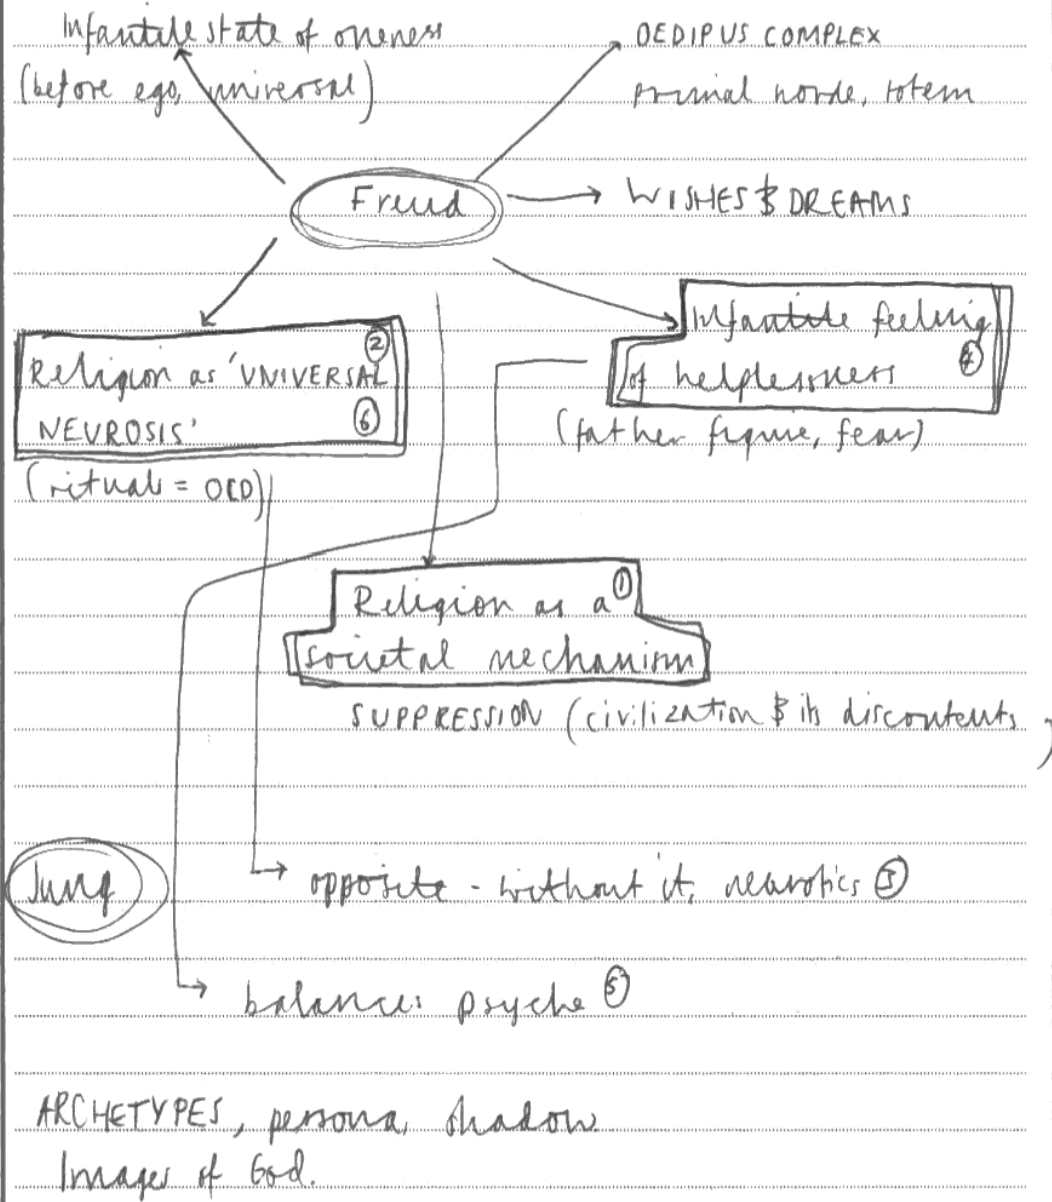 Infantile state of oneness
(before ego, universal)
OEDIPUS COMPLEX
primal horde, totem
Freud
WISHES & DREAMS
Religion as 'UNIVERSAL ②
NEUROSIS' ⑥
(ritual = OCD)
Infantile feeling
of helplessness ④
(father figure, fear)
Religion as a ①
societal mechanism
SUPPRESSION (civilization & its discontents)
Jung
opposite - without it, neurotics
balances psyche ⑤
ARCHETYPES, persona, shadow
Images of God.